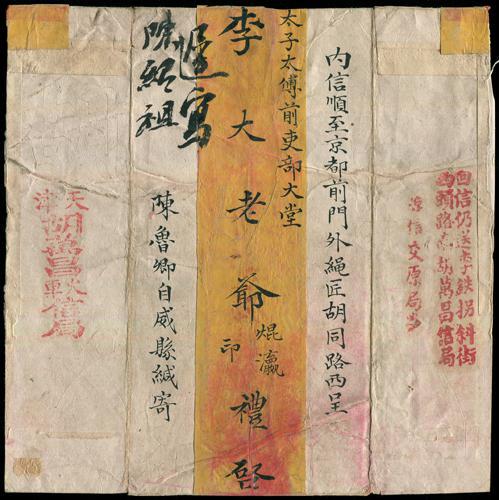 回信仍送李鉄拐斜街
西頭路南胡萬昌信局
原局
内信順至京都前門外繩匠胡同路西呈
太子太傅前吏部大堂
李大老爺焜瀛印禮啓
陳魯卿自威縣緘寄
陳紹祖
天津
胡萬昌
信局